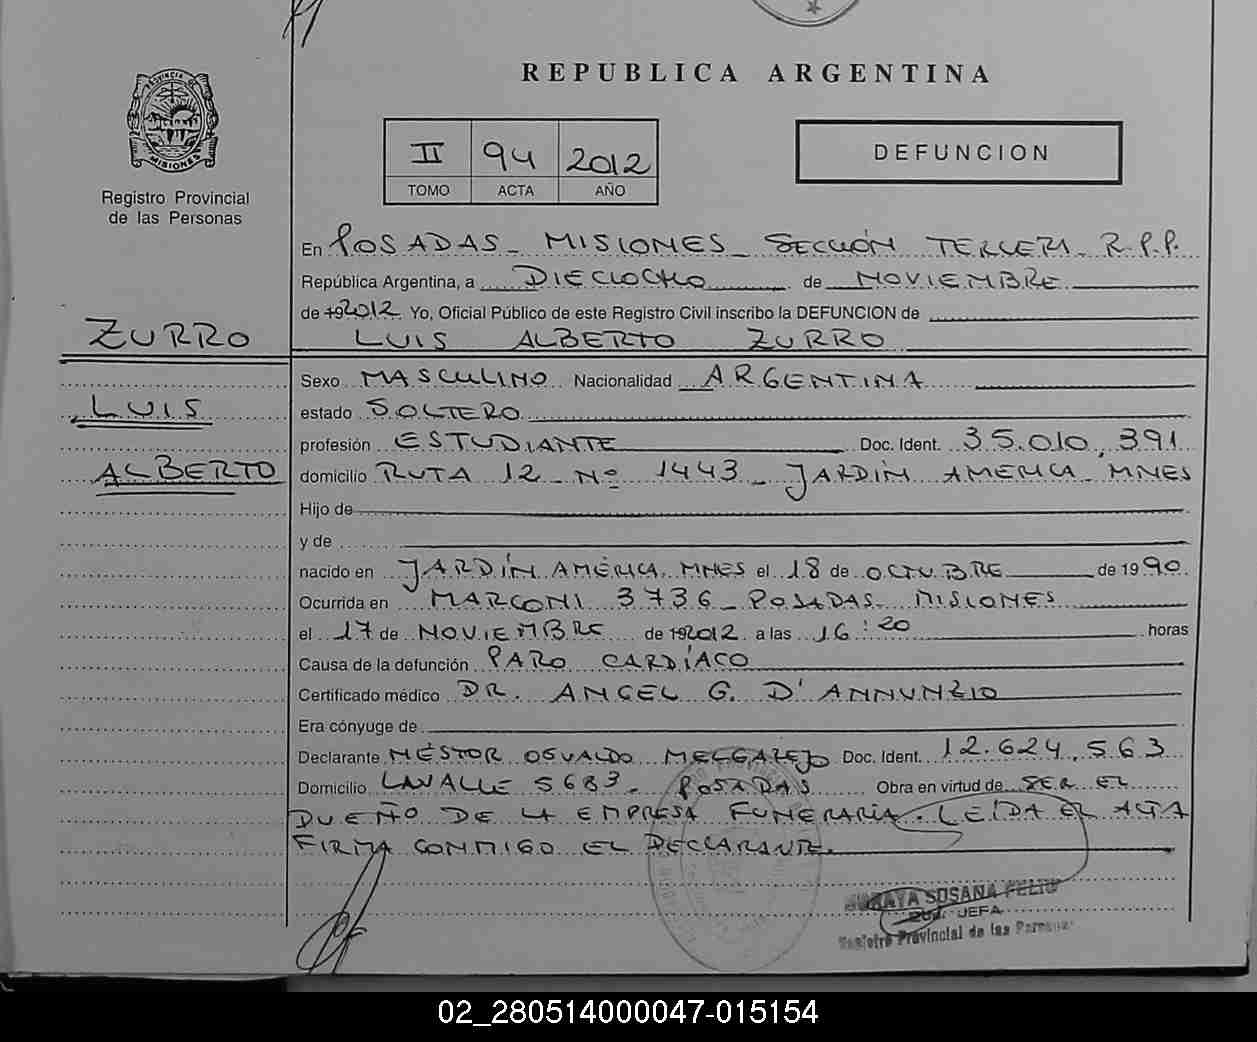 PROVINCIA DE
MISIONES
Registro Provincial
de las Personas
REPUBLICA ARGENTINA
II 94 2012
TOMO ACTA AÑO
DEFUNCION
En POSADAS - MISIONES SECCIÓN TERCERA R.P.P.
República Argentina, a DIECIOCHO de NOVIEMBRE
de 192012 Yo, Oficial Público de este Registro Civil inscribo la DEFUNCION de
LUIS ALBERTO ZURRO
ZURRO
LUIS
ALBERTO
Sexo MASCULINO Nacionalidad ARGENTINA
estado SOLTERO
profesión ESTUDIANTE Doc. Ident. 35.010.391
domicilio RUTA 12 - Nº 1443 - JARDÍN AMERICA - MNES
Hijo de
y de
nacido en JARDÍN AMÉRICA. MNES el 18 de OCTUBRE de 1990
Ocurrida en MARCONI 3736 - POSADAS - MISIONES
el 17 de NOVIEMBRE de 192012 a las 16:20 horas
Causa de la defunción PARO CARDÍACO
Certificado médico DR. ANGEL G. D'ANNUNZIO
Era cónyuge de
Declarante NÉSTOR OSVALDO MELGAREJO Doc. Ident. 12.624.563
Domicilio LAVALLE 5683. POSADAS Obra en virtud de SER EL
DUEÑO DE LA EMPRESA FUNERARIA. LEÍDA EL ACTA
FIRMA CONMIGO EL DECLARANTE.
SUSANA
JEFA
Registro Provincial de las Personas
02_280514000047-015154